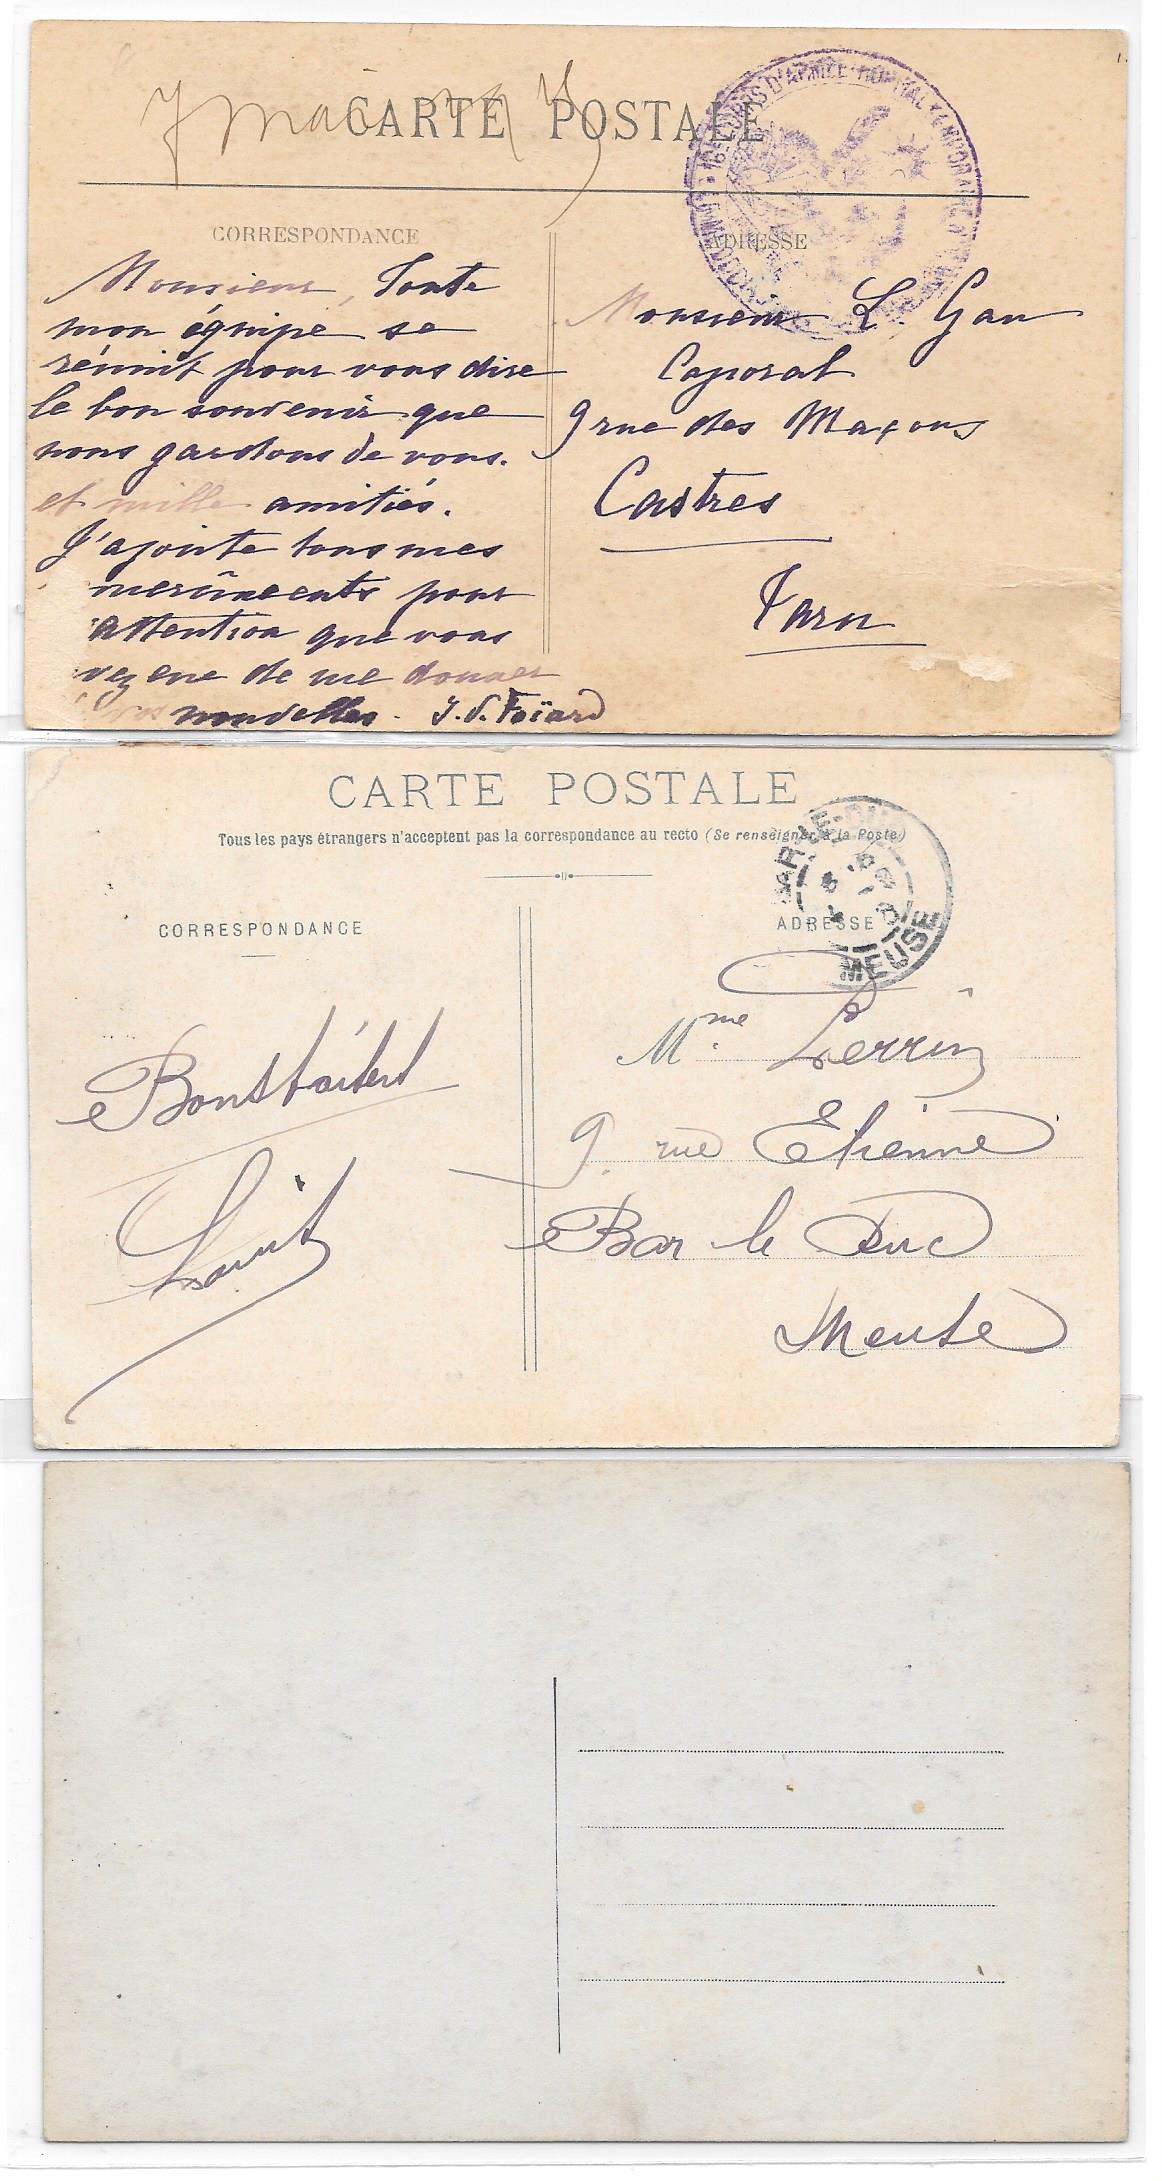 7 mai
CARTE POSTALE
16E CORPS D'ARMEE
CORRESPONDANCE
ADRESSE
Monsieur, Toute
mon équipe se
réunit pour vous dire
le bon souvenir que
nous gardons de vous.
et mille amitiés.
J'ajoute tous mes
pour
attention que vous
de me donner
vos nouvelles. J. S. Foïard
Monsieur L. Gau
Caporal
9 rue des Maçons
Castres
Tarn
CARTE POSTALE
Tous les pays étrangers n'acceptent pas la correspondance au recto (Se renseigner à la Poste)
BAR-LE-DUC
MEUSE
CORRESPONDANCE
ADRESSE
Louis
Mme Perrin
9. rue Etienne
Bar le Duc
Meuse